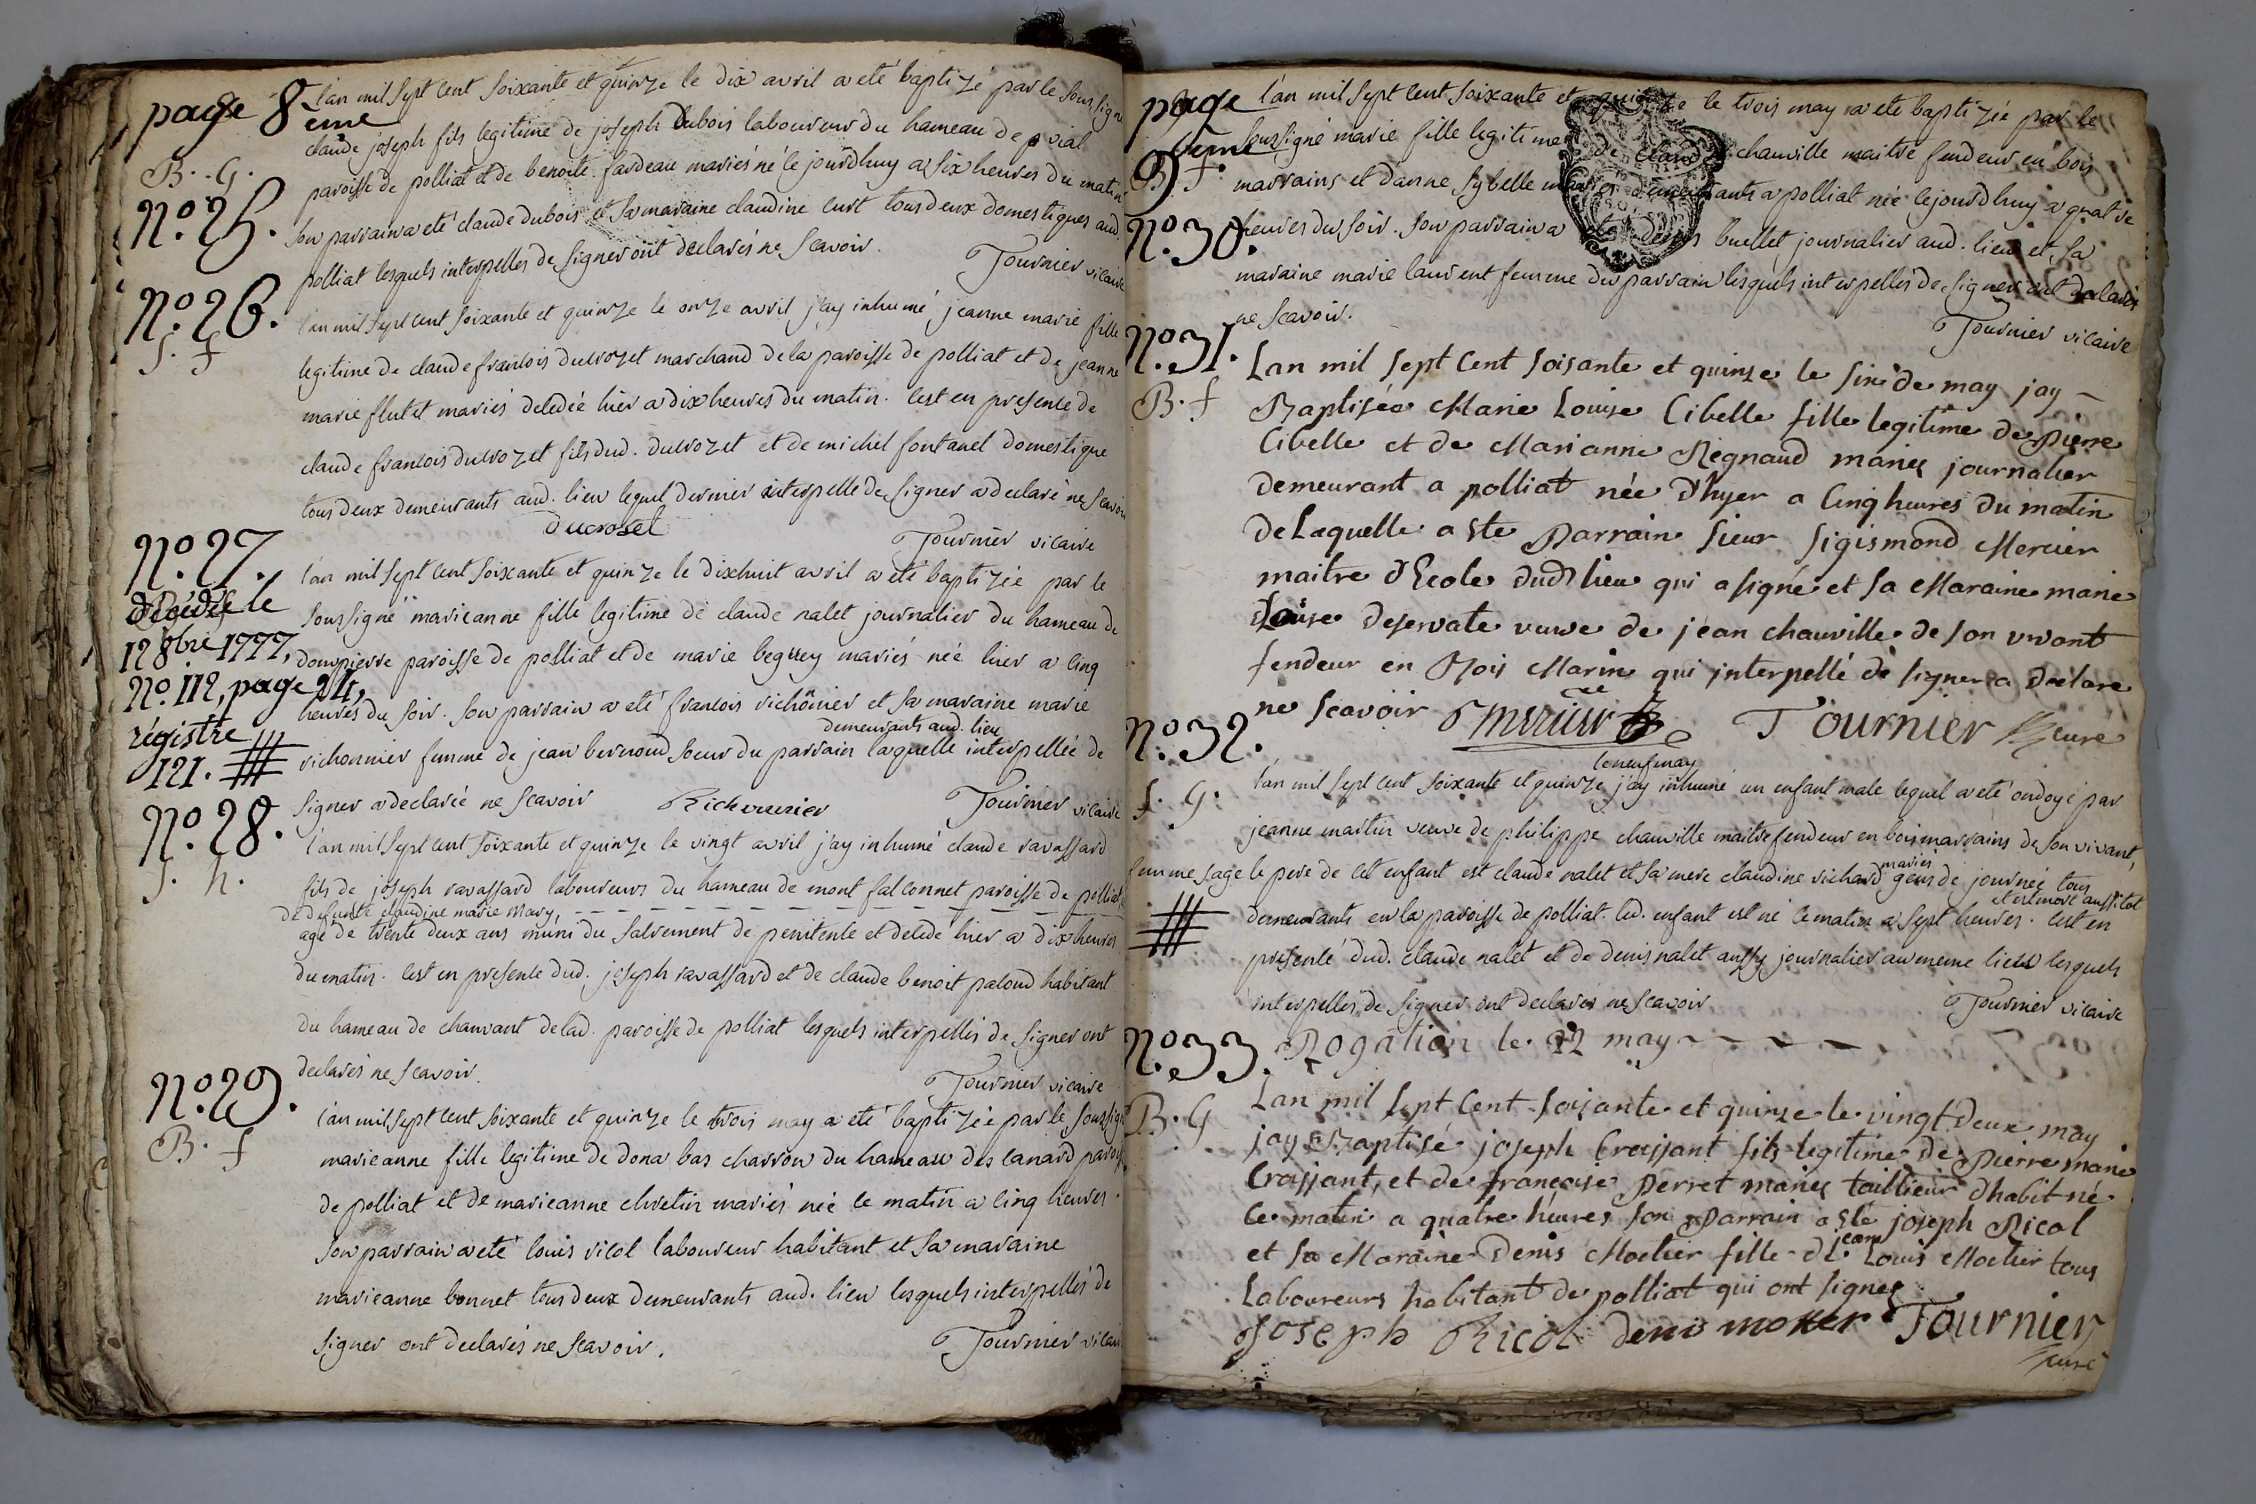 page 8
eme
l'an mil sept cent soixante et quinze le dix avril a eté baptizé par le soussigné
claude joseph fils legitime de joseph dubois laboureur du hameau de vial
B. G.
paroisse de polliat et de benoite fardeau mariés né le jourdhuy a six heures du matin
N.º 25.
son parrain a eté claude dubois et sa maraine claudine curt tous deux domestiques aud.
polliat lesquels interpellés de signer ont declarés ne scavoir. Tournier vicaire
N.º 26.
S. f
l'an mil sept cent soixante et quinze le onze avril j'ay inhumé jeanne marie fille
legitime de claude francois ducrozet marchand de la paroisse de polliat et de jeanne
marie flutet mariés decedée hier a dix heures du matin. c'est en presence de
claude francois ducrozet fils dud. ducrozet et de michel fontanel domestique
tous deux demeurants aud. lieu lequel dernier interpellé de signer a declaré ne scavoir
ducroset Tournier vicaire
N.º 27.
décédée le
12 8bre 1777,
Nº 112, page 24,
régistre
121.
l'an mil sept cent soixante et quinze le dixhuit avril a eté baptizée par le
soussigné marieanne fille legitime de claude nalet journalier du hameau de
dompierre paroisse de polliat et de marie beguey mariés née hier a cinq
heures du soir. son parrain a eté francois richonnier et sa maraine marie
demeurants aud. lieu
richonnier femme de jean bernoud soeur du parrain laquelle interpellée de
signer a declarée ne scavoir Richonnier Tournier vicaire
N.º 28.
S. h.
l'an mil sept cent soixante et quinze le vingt avril j'ay inhumé claude ravassard
fils de joseph ravassard laboureurs du hameau de mont falconnet paroisse de polliat
de defunte claudine marie Mary,
agé de trente deux ans muni du sacrement de penitence et decedé hier a dix heures
du matin. c'est en presence dud. joseph ravassard et de claude benoit paloud habitant
du hameau de chanvant de lad. paroisse de polliat lesquels interpellés de signer ont
declarés ne scavoir. Tournier vicaire
N.º 29.
B. f
l'an mil sept cent soixante et quinze le trois may a eté baptizée par le soussigné
marieanne fille legitime de dona bas charron du hameau des canard paroisse
de polliat et de marieanne chretin mariés née ce matin a cinq heures.
son parrain a eté louis vicol laboureur habitant et sa maraine
marieanne bonnet tous deux demeurants aud. lieu lesquels interpellés de
signer ont declarés ne scavoir. Tournier vicaire
page
9eme
l'an mil sept cent soixante et quinze le trois may a eté baptizée par le
soussigné marie fille legitime de claude chauville maitre fendeur en bois
B. f
marrains et danne sybelle mariés demeurants a polliat née le jourdhuy a quatre
N.º 30.
heures du soir. son parrain a eté denis buellet journalier aud. lieu et sa
maraine marie laurent femme du parrain lesquels interpellés de signer ont declarés
ne scavoir. Tournier vicaire
N.º 31.
B. f
Lan mil sept cent soisante et quinse le sixe de may jay
Baptiséé Marie Louise Cibelle fille legitime de Pierre
Cibelle et de Marianne Regnaud mariés journalier
demeurant a polliat née d'hyer a cinq heures du matin
de Laquelle a ete Parrain sieur Sigismond Mercier
maitre d'Ecole dud lieu qui a signé et sa Maraine marie
Loüise deservate veuve de jean chauville de son vivant
fendeur en Bois Marin qui interpellé de signer a declare
ne scavoir Mercier Tournier curé
N.º 32.
le neuf may
f. G.
l'an mil sept cent soixante et quinze j'ay inhumé un enfant male lequel a eté ondoyé par
jeanne martin veuve de philippe chauville maitre fendeur en bois marrains de son vivant,
mariés
femme sage le pere de cet enfant est claude nalet et sa mere claudine richard gens de journée tous
et est mort aussitot
demeurants en la paroisse de polliat. led. enfant est né ce matin a sept heures. c'est en
presence dud. claude nalet et de denis nalet aussy journalier au meme lieu lesquels
interpellés de signer ont declarés ne scavoir Tournier vicaire
N.º 33. Rogation le 22 may
B. G
Lan mil sept cent soisante et quinze le vingt deux may
jay Baptisé joseph Croissant fils legitime de Pierre marie
Croissant, et de françoise Perret mariés taillieur dhabit né
ce matin a quatre heures son Parrain a été joseph Ricol
jean
et sa Maraine Denis Moctier fille de Louis Moctier tous
Laboureurs habitant de polliat qui ont signes
Joseph Ricol denis mottier Tournier
curé